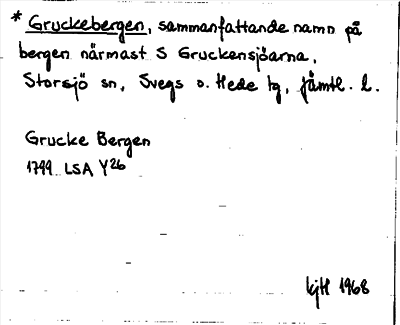 * Gruckebergen, sammanfattande namn på
bergen närmast S Gruckensjöarna,
Storsjö sn, Svegs o. Hede tg, Jämtl. l.
Grucke Bergen
1799 LSA Y26
kjH 1968